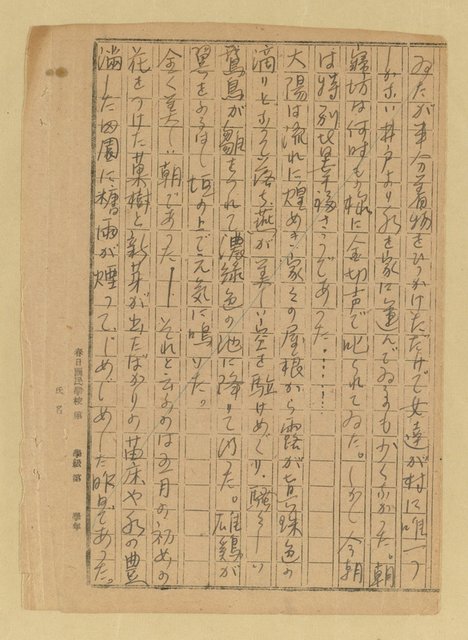 ゐたが半分着物をひつかけたゞけで女達が村に唯一つ
しかない井戸より水を家に運んでゐるのも少くなかつた。朝
寝坊は何時もの様に金切声で叱られてゐた。しかし今朝
は特別皆幸福さうであつた。……
太陽は流れに煌めき家々の屋根から露が真珠色の
滴りとなつて落ち燕が美しい空を駈けめぐり、騒々しい
鵞鳥が雛をつれて濃緑色の池に降りて行つた。雄鶏が
翼をならし垣の上で元気に鳴いた。
全く美しい朝であつた──それと云ふのは五月の初めの
花をつけた菓樹と新芽が出たばかりの苗床や水の豊
満した田園に糠雨が煙つて、じめじめした昨日であつた。
春日國民學校 第 學級 第 學年
氏名